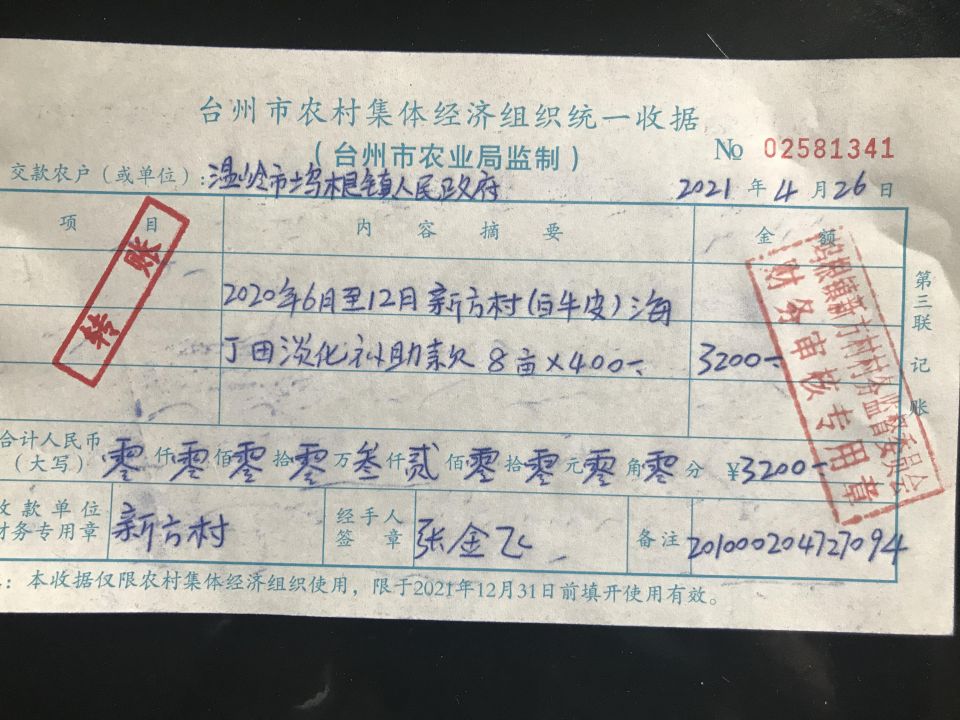 台州市农村集体经济组织统一收据
(台州市农业局监制) № 02581341
交款农户(或单位):温岭市坞根镇人民政府 2021年4月26日
项目 内容摘要 金额
转账
2020年6月至12月新方村(白牛皮)海
丁田淡化补助款 8亩×400- 3200-
坞根镇新方村村务监督委员会
财务审核专用章
第三联 记账
合计人民币
(大写) 零仟零佰零拾零万叁仟贰佰零拾零元零角零分 ¥3200-
收款单位
财务专用章 新方村 经手人
签章 张金飞 备注 201000204727094
:本收据仅限农村集体经济组织使用,限于2021年12月31日前填开使用有效。